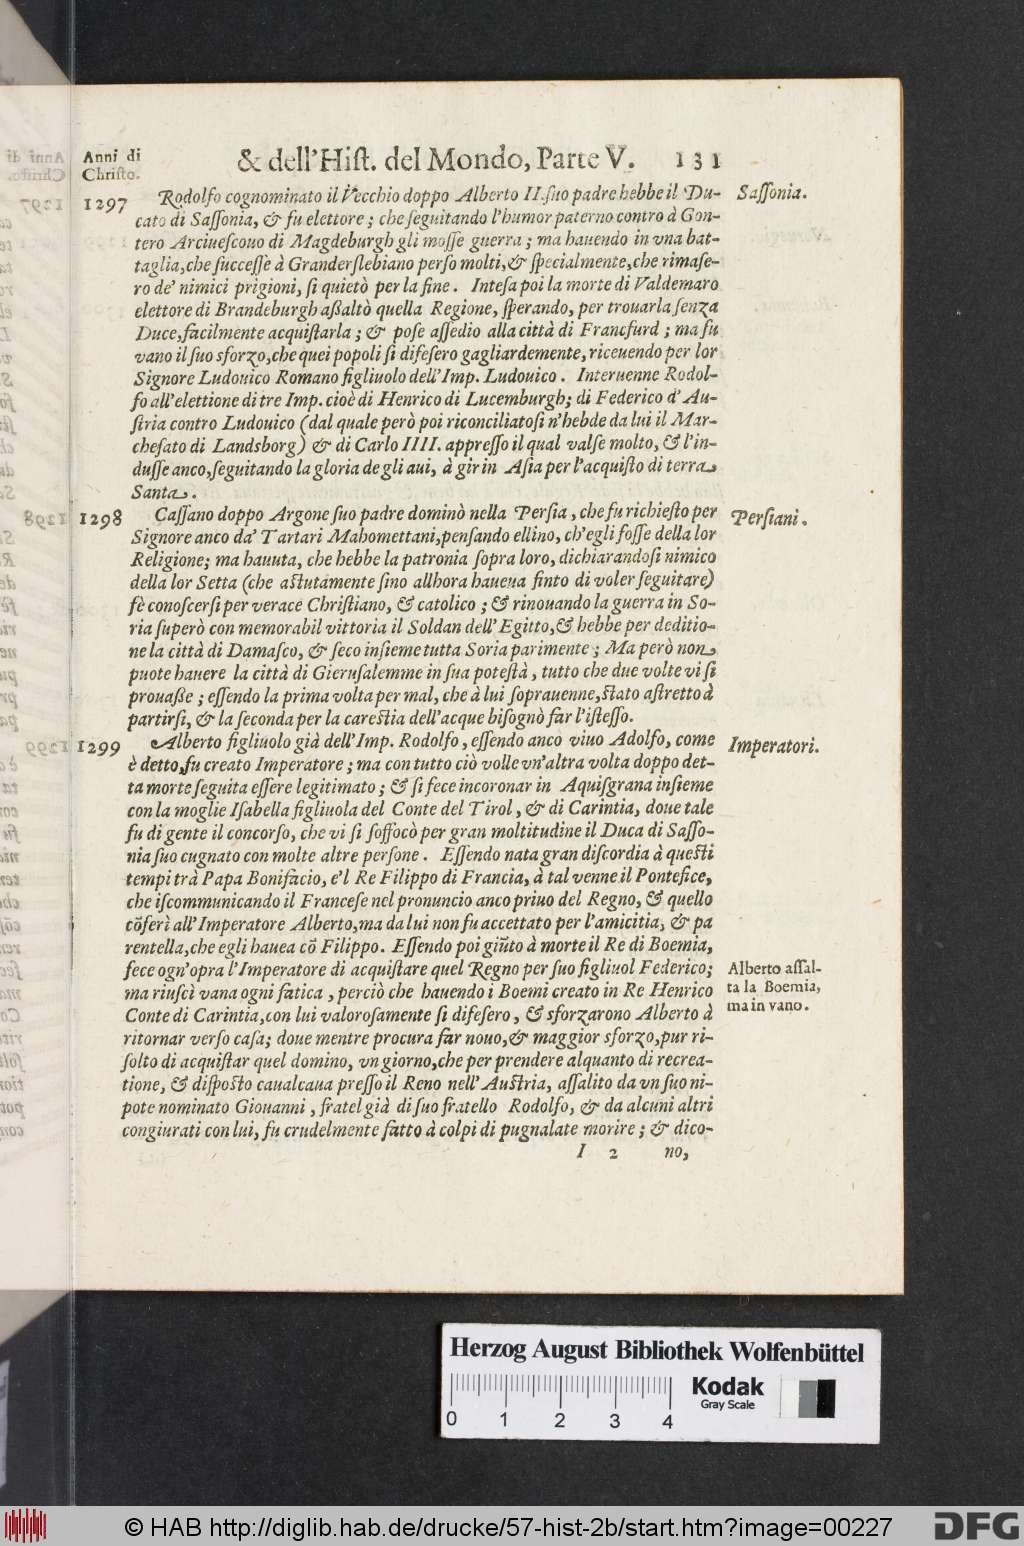 Anni di
Christo.
& dell'Hiſt. del Mondo, Parte V. 131
1297 Rodolfo cognominato il Vecchio doppo Alberto II. ſuo padre hebbe il Du- Saſſonia.
cato di Saſſonia, & fu elettore; che ſeguitando l'humor paterno contro à Gon-
tero Arciueſcouo di Magdeburgh gli moſſe guerra; ma hauendo in vna bat-
taglia, che ſucceſſe à Granderslebiano perſo molti, & ſpecialmente, che rimaſe-
ro de' nimici prigioni, ſi quietò per la fine. Inteſa poi la morte di Valdemaro
elettore di Brandeburgh aßaltò quella Regione, ſperando, per trouarla ſenza
Duce, facilmente acquiſtarla; & poſe aſſedio alla città di Francfurd; ma fu
vano il ſuo sforzo, che quei popoli ſi difeſero gagliardemente, riceuendo per lor
Signore Ludouico Romano figliuolo dell'Imp. Ludouico. Interuenne Rodol-
fo all'elettione di tre Imp. cioè di Henrico di Lucemburgh; di Federico d'Au-
ſtria contro Ludouico (dal quale però poi riconciliatoſi n'hebde da lui il Mar-
cheſato di Landsborg) & di Carlo IIII. appreſſo il qual valſe molto, & l'in-
duſſe anco, ſeguitando la gloria de gli aui, à gir in Aſia per l'acquiſto di terra
Santa.
1298 Caſſano doppo Argone ſuo padre dominò nella Perſia, che fu richieſto per Perſiani.
Signore anco da' Tartari Mahomettani, penſando ellino, ch'egli foſſe della lor
Religione; ma hauuta, che hebbe la patronia ſopra loro, dichiarandoſi nimico
della lor Setta (che aſtutamente ſino allhora haueua finto di voler ſeguitare)
fè conoſcerſi per verace Chriſtiano, & catolico; & rinouando la guerra in So-
ria ſuperò con memorabil vittoria il Soldan dell'Egitto, & hebbe per deditio-
ne la città di Damaſco, & ſeco inſieme tutta Soria parimente; Ma però non
puote hauere la città di Gieruſalemme in ſua poteſtà, tutto che due volte vi ſi
prouaße; eſſendo la prima volta per mal, che à lui ſoprauenne, ſtato aſtretto à
partirſi, & la ſeconda per la careſtia dell'acque biſognò far l'iſteſſo.
1299 Alberto figliuolo già dell'Imp. Rodolfo, eſſendo anco viuo Adolfo, come Imperatori.
è detto, fu creato Imperatore; ma con tutto ciò volle vn'altra volta doppo det-
ta morte ſeguita eſſere legitimato; & ſi fece incoronar in Aquiſgrana inſieme
con la moglie Iſabella figliuola del Conte del Tirol, & di Carintia, doue tale
fu di gente il concorſo, che vi ſi ſoffocò per gran moltitudine il Duca di Saſſo-
nia ſuo cugnato con molte altre perſone. Eſſendo nata gran diſcordia à queſti
tempi trà Papa Bonifacio, e'l Re Filippo di Francia, à tal venne il Pontefice,
che iſcommunicando il Franceſe nel pronuncio anco priuo del Regno, & quello
cõferì all'Imperatore Alberto, ma da lui non fu accettato per l'amicitia, & pa
rentella, che egli hauea cõ Filippo. Eſſendo poi giũto à morte il Re di Boemia,
fece ogn'opra l'Imperatore di acquiſtare quel Regno per ſuo figliuol Federico; Alberto aſſal-
ma riuſcì vana ogni fatica, perciò che hauendo i Boemi creato in Re Henrico ta la Boemia,
Conte di Carintia, con lui valoroſamente ſi difeſero, & sforzarono Alberto à ma in vano.
ritornar verſo caſa; doue mentre procura far nouo, & maggior sforzo, pur ri-
ſolto di acquiſtar quel domino, vn giorno, che per prendere alquanto di recrea-
tione, & diſpoſto caualcaua preſſo il Reno nell'Auſtria, aſſalito da vn ſuo ni-
pote nominato Giouanni, fratel già di ſuo fratello Rodolfo, & da alcuni altri
congiurati con lui, fu crudelmente fatto à colpi di pugnalate morire; & dico-
I 2 no,
Herzog August Bibliothek Wolfenbüttel
0 1 2 3 4
Kodak
Gray Scale
© HAB http://diglib.hab.de/drucke/57-hist-2b/start.htm?image=00227
DFG